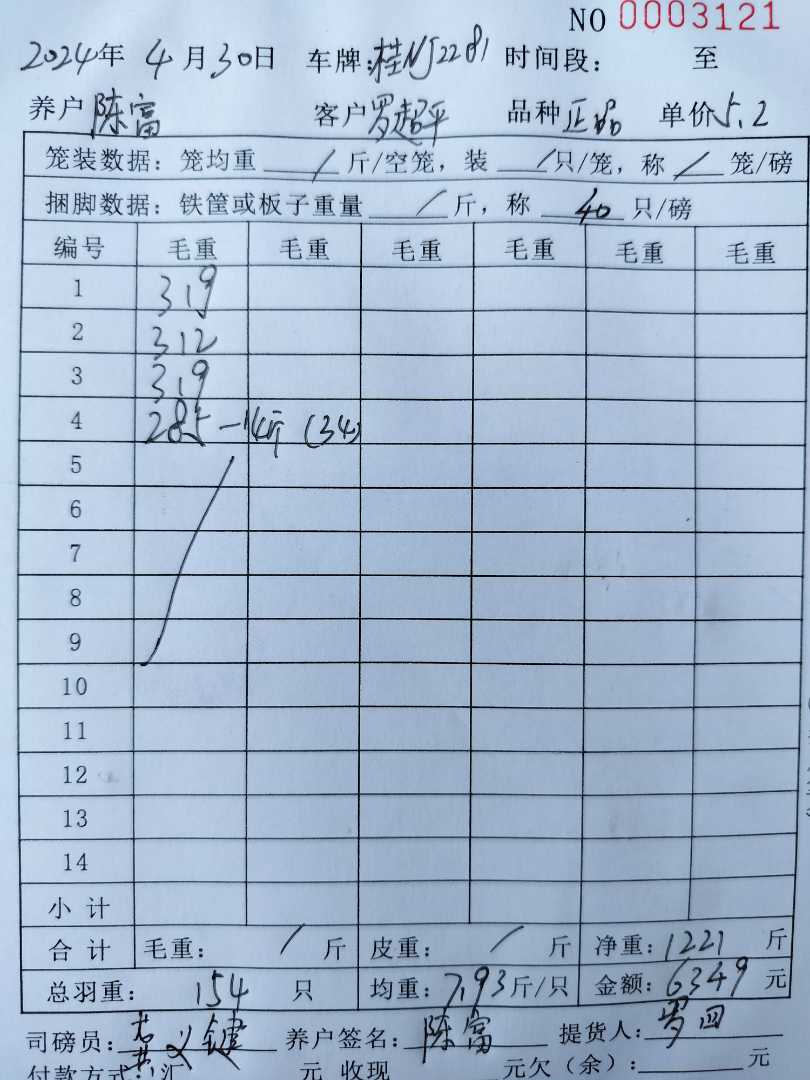 NO 0003121
2024年 4月30日 车牌:桂NJ2281 时间段: 至
养户 陈富 客户 罗超平 品种 正品 单价 5.2
笼装数据: 笼均重 / 斤/空笼, 装 / 只/笼, 称 / 笼/磅
捆脚数据: 铁筐或板子重量 / 斤, 称 40 只/磅
编号 毛重 毛重 毛重 毛重 毛重 毛重
1 319
2 312
3 319
4 285 - 14斤 (34)
5
6
7
8
9
10
11
12
13
14
小计
合计 毛重: / 斤 皮重: / 斤 净重: 1221 斤
总羽重: 154 只 均重: 7.93 斤/只 金额: 6349 元
司磅员: 养户签名: 陈富 提货人: 罗四
付款方式: 汇 元 收现 元欠(余): 元